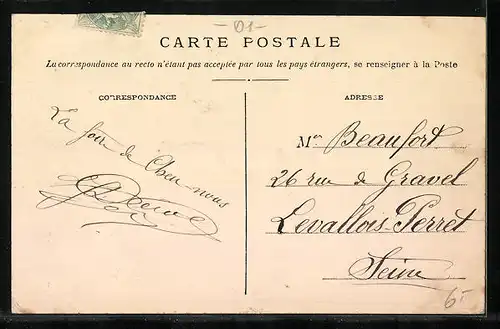 01-
CARTE POSTALE
La correspondance au recto n'étant pas acceptée par tous les pays étrangers, se renseigner à la Poste
CORRESPONDANCE
ADRESSE
La foir de Chen-nous
Mr Beaufort
26 rue de Gravel
Levallois-Perret
Seine
6-